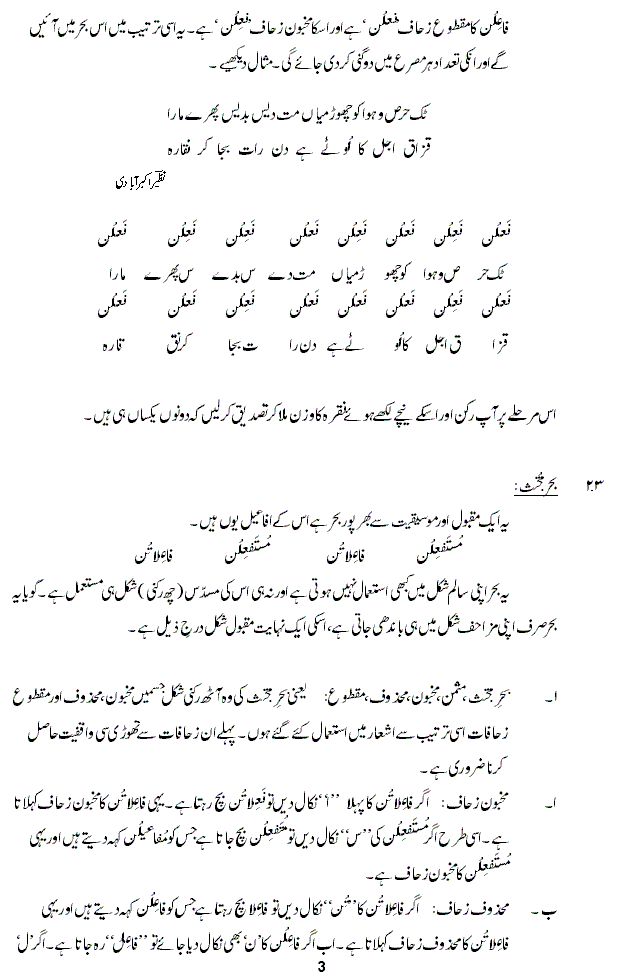 فاعِلُن کا مقطوع زحاف ’فعلُن‘ ہے اور اسکا مخبون زحاف ’فَعِلُن‘ ہے۔ یہ اسی ترتیب میں اس بحر میں آئیں
گے اور انکی تعداد ہر مصرع میں دوگنی کردی جائے گی۔ مثال دیکھیے۔
ٹک حرص و ہوا کو چھوڑ میاں مت دیس بدیس پھرے مارا
قزاق اجل کا لُوٹے ہے دن رات بجا کر نقارہ
نظیر اکبر آبادی
فَعلُن فَعِلُن فَعلُن فَعِلُن فَعلُن فَعِلُن فَعِلُن فَعلُن
ٹک حر ص و ہوا کو چھو ڑ میاں مت دے س بدے س پھرے مارا
فَعلُن فَعِلُن فَعلُن فَعِلُن فَعلُن فَعِلُن فَعلُن فَعلُن
قزا ق اجل کا لُو ٹے ہے دن را ت بجا کر نق قارہ
اس مرحلے پر آپ رکن اور اسکے نیچے لکھے ہوئے فقرہ کا وزن ملا کر تصدیق کر لیں کہ دونوں یکساں ہی ہیں۔
۲۳ بحر مجُتث:
یہ ایک مقبول اور موسیقیت سے بھر پور بحر ہے اس کے افاعیل یوں ہیں۔
مُستَفعِلُن فاعِلاتُن مُستَفعِلُن فاعِلاتُن
یہ بحر اپنی سالم شکل میں کبھی استعمال نہیں ہوتی ہے اور نہ ہی اس کی مسدّس (چھ رکنی) شکل ہی مستعمل ہے۔ گویا یہ
بحر صرف اپنی مزاحف شکل میں ہی باندھی جاتی ہے، اسکی ایک نہایت مقبول شکل درجِ ذیل ہے۔
ا۔ بحرِ مجتث، مثمن، مخبون، محذوف، مقطوع: یعنی بحرِ مجتث کی وہ آٹھ رکنی شکل جسمیں مخبون، محذوف اور مقطوع
زحافات اسی ترتیب سے اشعار میں استعمال کئے گئے ہوں۔ پہلے ان زحافات سے تھوڑی سی واقفیت حاصل
کرنا ضروری ہے۔
ا۔ مخبون زحاف: اگر فاعِلاتُن کا پہلا ’’ا‘‘ نکال دیں تو فَعِلاتُن بچ رہتا ہے۔ یہی فاعِلاتُن کا مخبون زحاف کہلاتا
ہے۔ اسی طرح اگر مُستَفعِلُن کی ’’س‘‘ نکال دیں تو مُتَفعِلُن بچ جاتا ہے جس کو مُفاعیلُن کہہ دیتے ہیں اور یہی
مُستَفعِلُن کا مخبون زحاف ہے۔
ب۔ محذوف زحاف: اگر فاعِلاتُن کا ’’تُن‘‘ نکال دیں تو فاعِلا بچ رہتا ہے جس کو فاعِلُن کہہ دیتے ہیں اور یہی
فاعِلاتُن کا محذوف زحاف کہلاتا ہے۔ اب اگر فاعِلُن کا ’ن‘ بھی نکال دیا جائے تو ’’فاعِلُ‘‘ رہ جاتا ہے۔ اگر ’ل‘
3